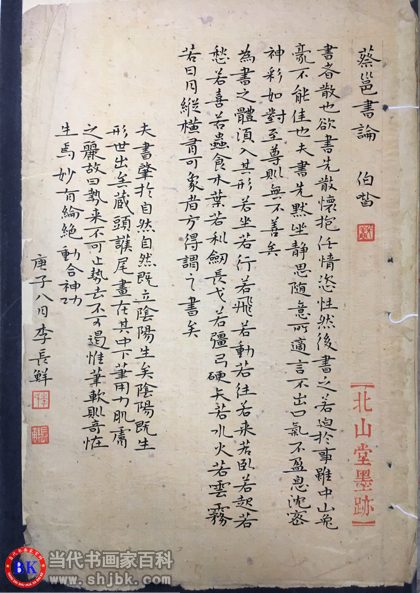 蔡邕書論 伯喈
書者散也欲書先散懷抱任情恣性然後書之若迫於事雖中山兔
豪不能佳也夫書先默坐静思随意所適言不出口氣不盈息沈密
神彩如對至尊則無不善矣
為書之體須入其形若坐若行若飛若動若往若来若卧若起若
愁若喜若蟲食木葉若利劒長戈若彊弓硬矢若水火若雲霧
若日月縱橫有可象者方得謂之書矣
夫書肇於自然自然既立陰陽生矣陰陽既生
形世出矣蔵頭護尾畫在其中下筆用力肌膚
之麗故曰势来不可止势去不可遏惟筆軟則奇怪
生焉妙有綸絶動合神功
庚子八月李長鮮
【北山堂墨跡】
BK
当代书画家百科
www.shjbk.com